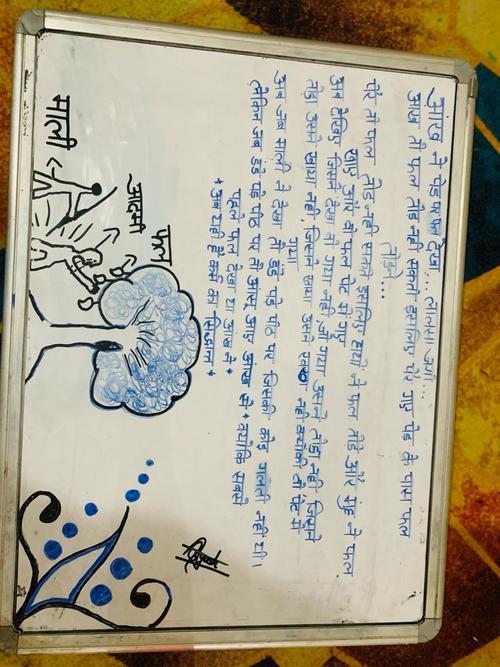 आंख ने पेड़ पर फल देखा,.. लालसा जगी...
आंख तो फल तोड़ नही सकती इसलिए पैर गए पेड़ के पास फल
तोड़ने...
पैर तो फल तोड़ नही सकते इसलिए हाथों ने फल तोड़े और मुंह ने फल
खाएं और वो फल पेट में गए
अब देखिए जिसने देखा वो गया नही, जो गया उसने तोड़ा नही, जिसने
तोड़ा उसने खाया नही, जिसने खाया उसने रखा नही क्योंकी वो पेट में
गया
अब जब माली ने देखा तो डंडे पड़े पीठ पर जिसकी कोई गलती नही थी ।
लेकिन जब डंडे पड़े पीठ पर तो आंसू आए आंख में * क्योंकि सबसे
पहले फल देखा था आंख ने *
* अब यही है कर्म का सिद्धान्त *
फल
आदमी
माली